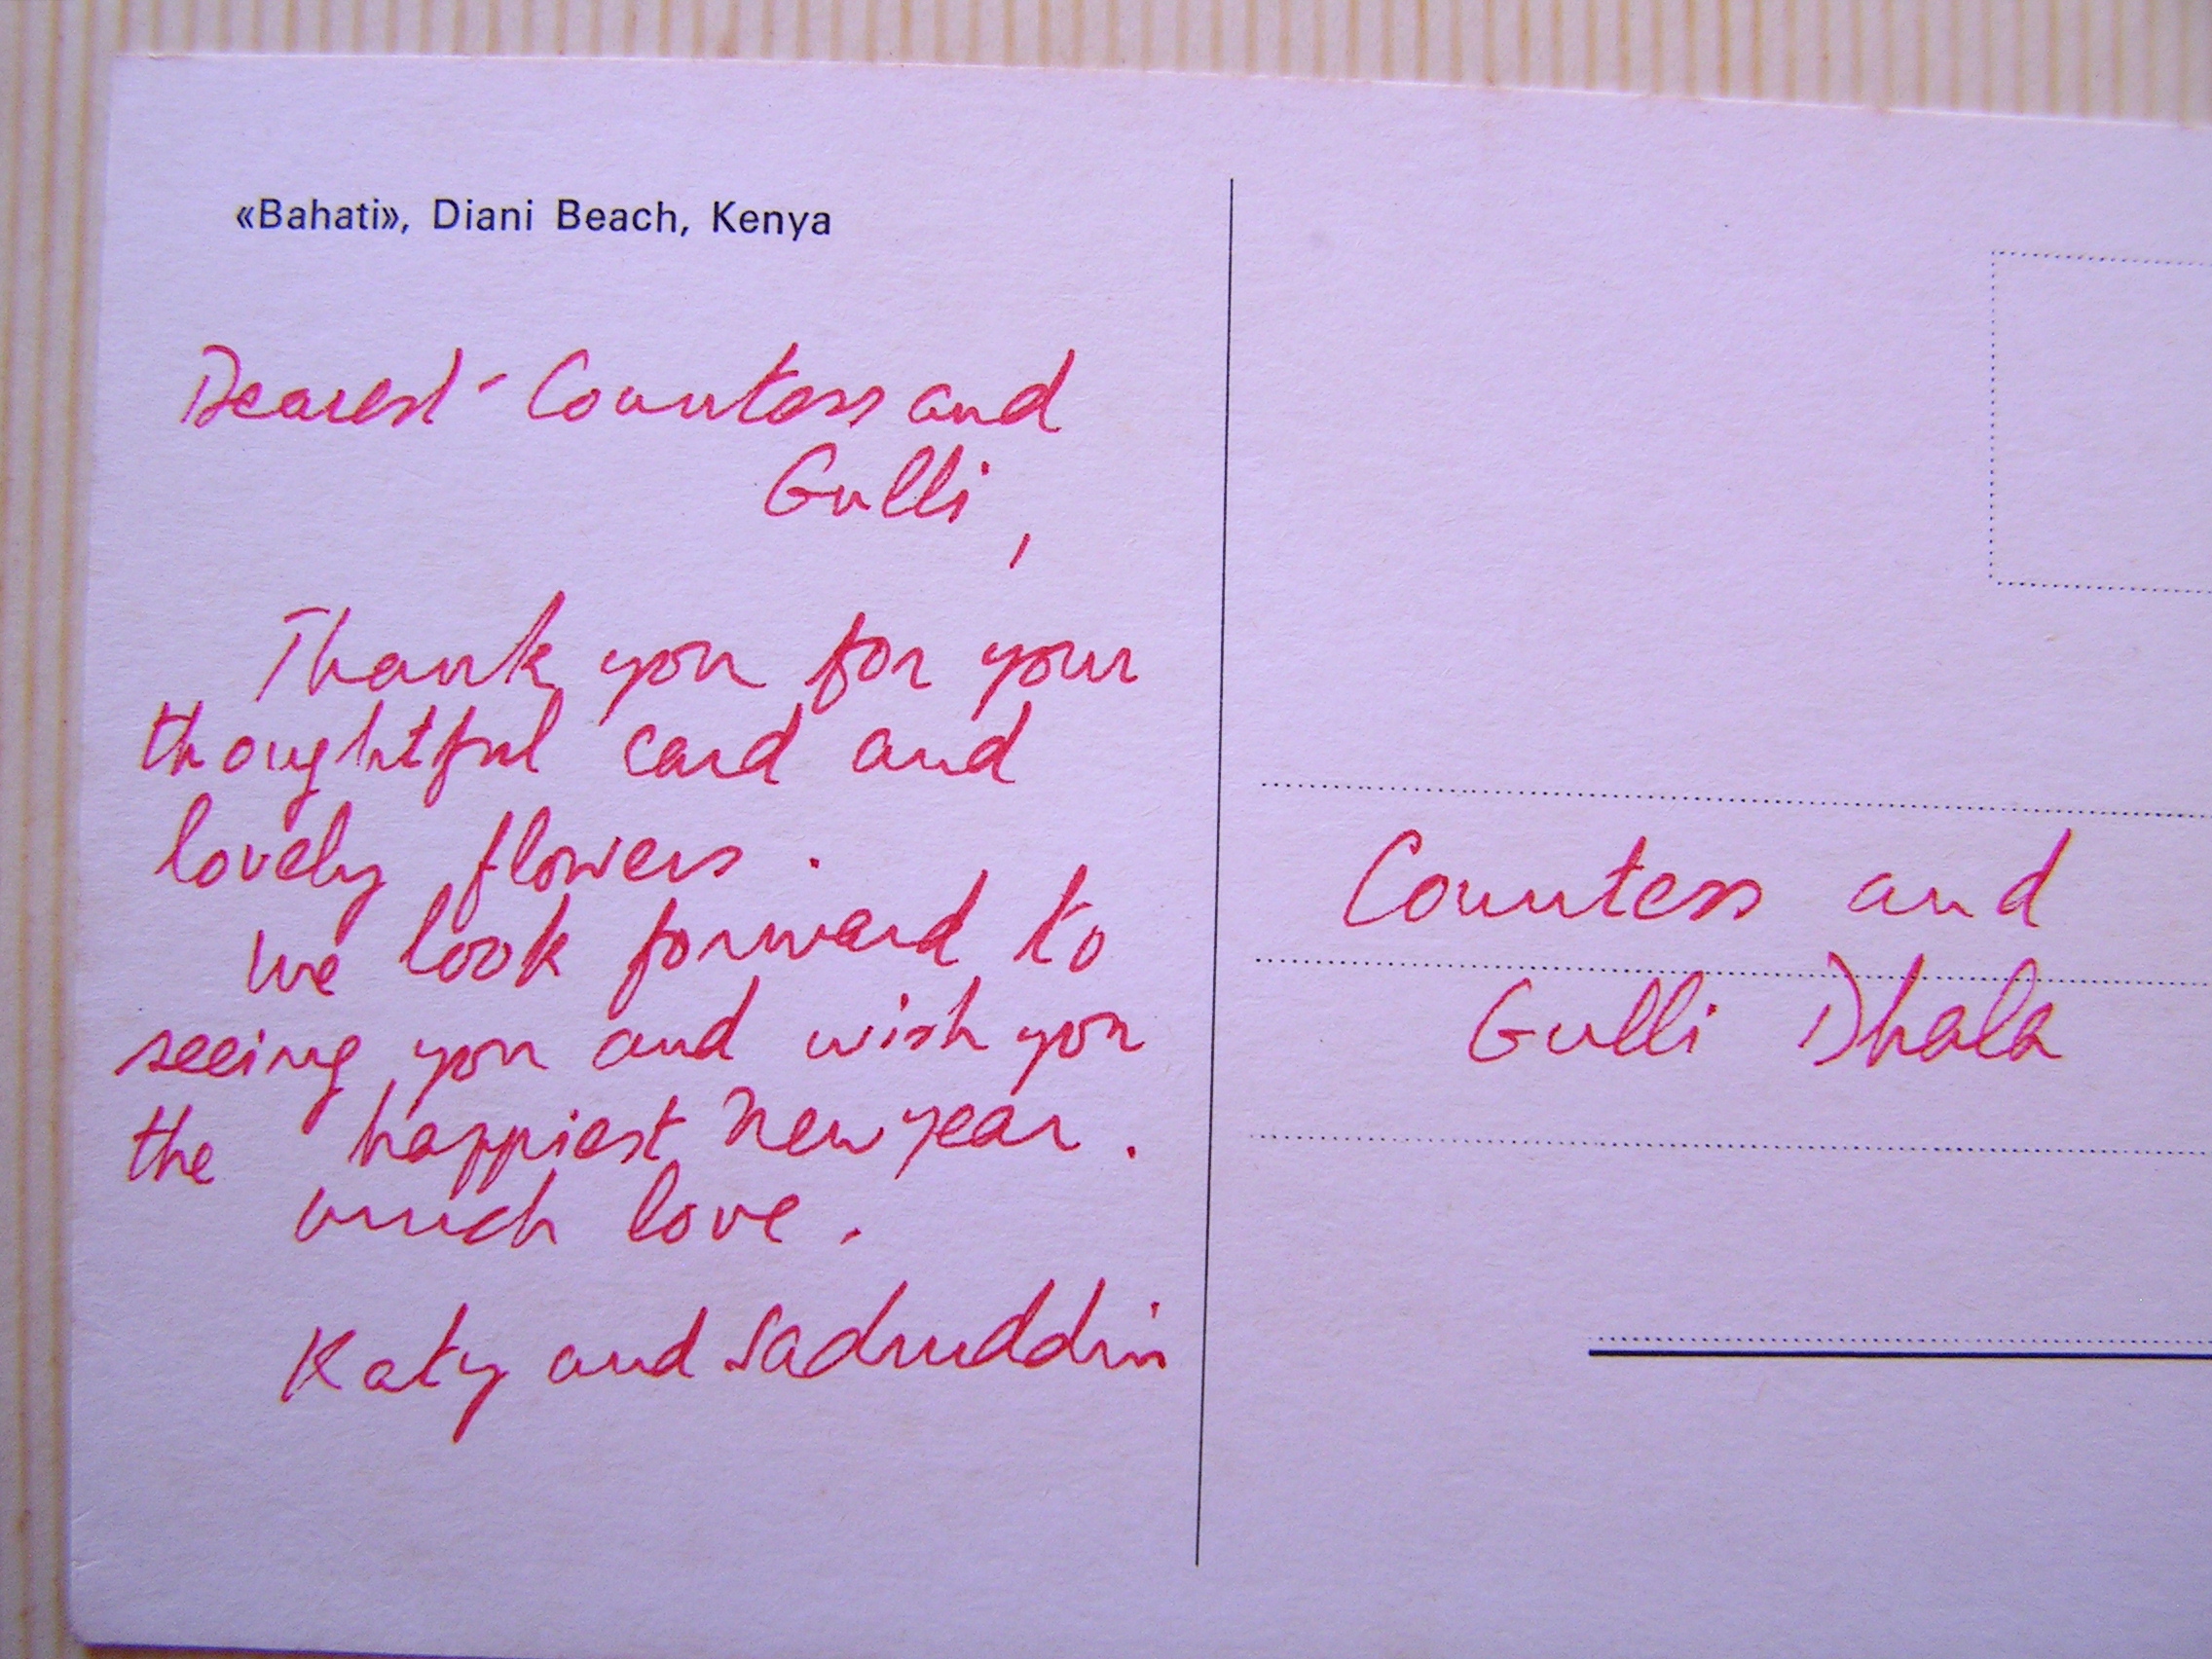 «Bahati», Diani Beach, Kenya
Dearest - Countess and
Gulli,
Thank you for your
thoughtful card and
lovely flowers.
We look forward to
seeing you and wish you
the happiest New year.
much love.
Katy and Sadruddin
Countess and
Gulli Dhala